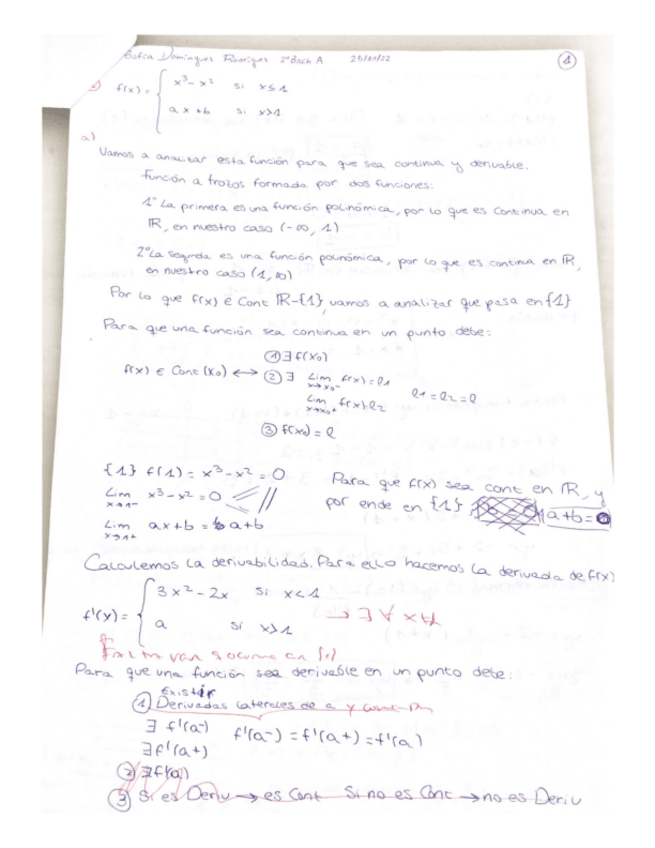 Sofía Dominguez Rodriguez 2ºBach A 25/11/22 ①
f(x) = { x³ - x² si x ≤ 1
a x + b si x > 1
a)
Vamos a analizar esta función para que sea continua y derivable.
Función a trozos formada por dos funciones:
1º La primera es una función polinómica, por lo que es continua en
ℝ, en nuestro caso (-∞, 1)
2º La segunda es una función polinómica, por lo que es continua en ℝ,
en nuestro caso (1, ∞)
Por lo que f(x) ∈ Cont ℝ-{1}, vamos a analizar que pasa en {1}
Para que una función sea continua en un punto debe:
① ∃ f(x₀)
f(x) ∈ Cont (x₀) ⟷ ② ∃ Lim x→x₀- f(x) = l1
Lim x→x₀+ f(x) = l2 l1 = l2 = l
③ f(x₀) = l
{1} f(1) = x³ - x² = 0
Lim x→1- x³ - x² = 0
Lim x→1+ ax + b = a + b
Para que f(x) sea cont en ℝ, y
por ende en {1} a + b = 0
Calculemos la derivabilidad. Para ello hacemos la derivada de f(x)
f'(x) = { 3x² - 2x si x < 1
a si x > 1 → ∃ ∀ x
Para que una función sea derivable en un punto debe:
Existir
① Derivadas laterales de a
∃ f'(a-) f'(a-) = f'(a+) = f'(a)
∃ f'(a+)
② ∃ f'(a)
③ Si es Deriv → es Cont Si no es Cont → no es Deriv